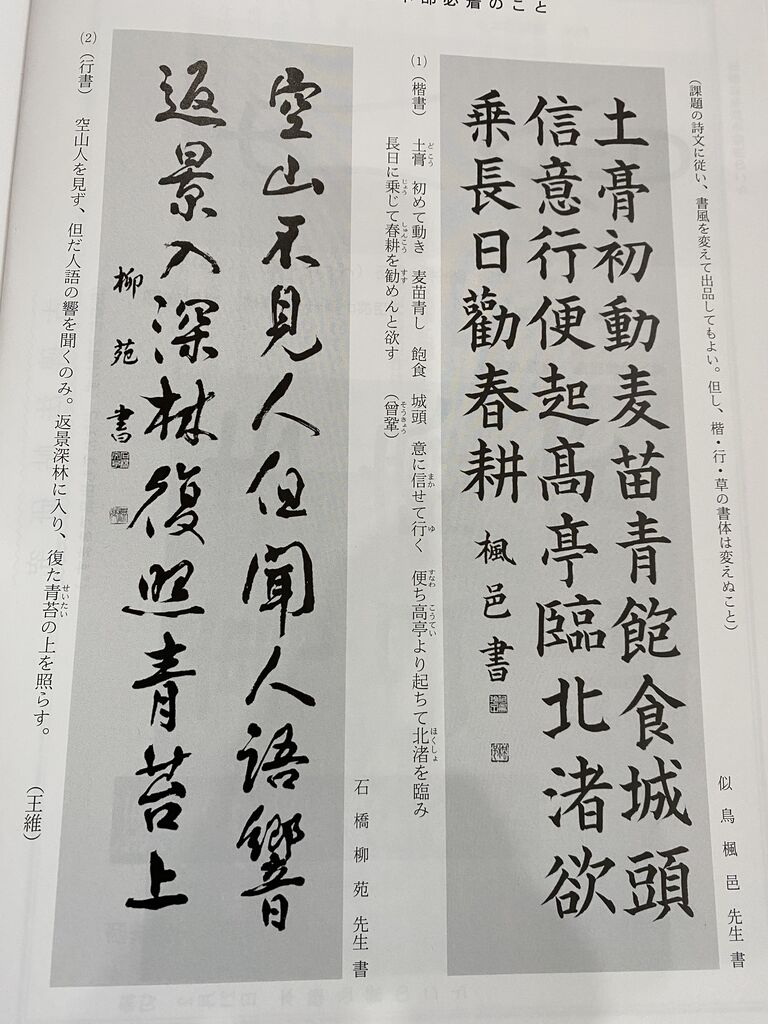 必着のこと
（課題の詩文に従い、書風を変えて出品してもよい。但し、楷・行・草の書体は変えぬこと）
似鳥楓邑先生書
土膏初動麦苗青飽食城頭
信意行便起高亭臨北渚欲
乗長日勸春耕 楓邑書
(1)（楷書） 土膏 初めて動き 麦苗青し 飽食 城頭 意に信せて行く 便ち高亭より起ちて北渚を臨み
長日に乗じて春耕を勧めんと欲す （曾鞏）
どこう そうきょう まか ゆ すなわ こうてい ほくしょ
じょう しゅんこう すす
石橋柳苑先生書
空山不見人但聞人語響
返景入深林復照青苔上
柳苑書
(2)（行書） 空山人を見ず、但だ人語の響を聞くのみ。返景深林に入り、復た青苔の上を照らす。
せいたい
（王維）